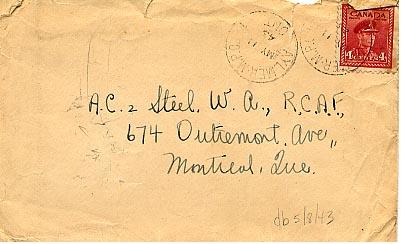 CANADA
4 4
MY 11
43
A.C. 2 Steel, W. A., R.C.A.F.,
674 Outremont Ave.,,
Montreal, Que.
db 5/8/43